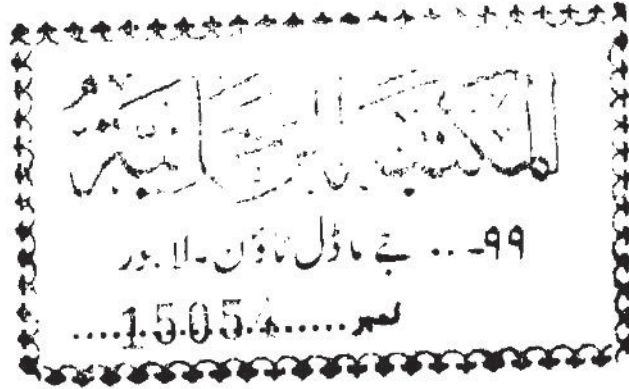 المكتبة الرحمانية
۹۹-.. جے ماڈل ٹاؤن-لاہور
نمبر.....15054.....